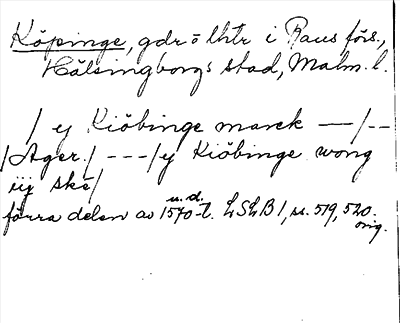 Köpinge, gdr o lhtr i Raus förs.,
Hälsingborgs stad, Malm. l.
/ ej Kiöbinge marck — / --
/ Ager. / --- / ej Kiöbinge wong
iij ske /
u. d.
förra delen av 1570-t. LSLB 1, ss. 519, 520.
orig.